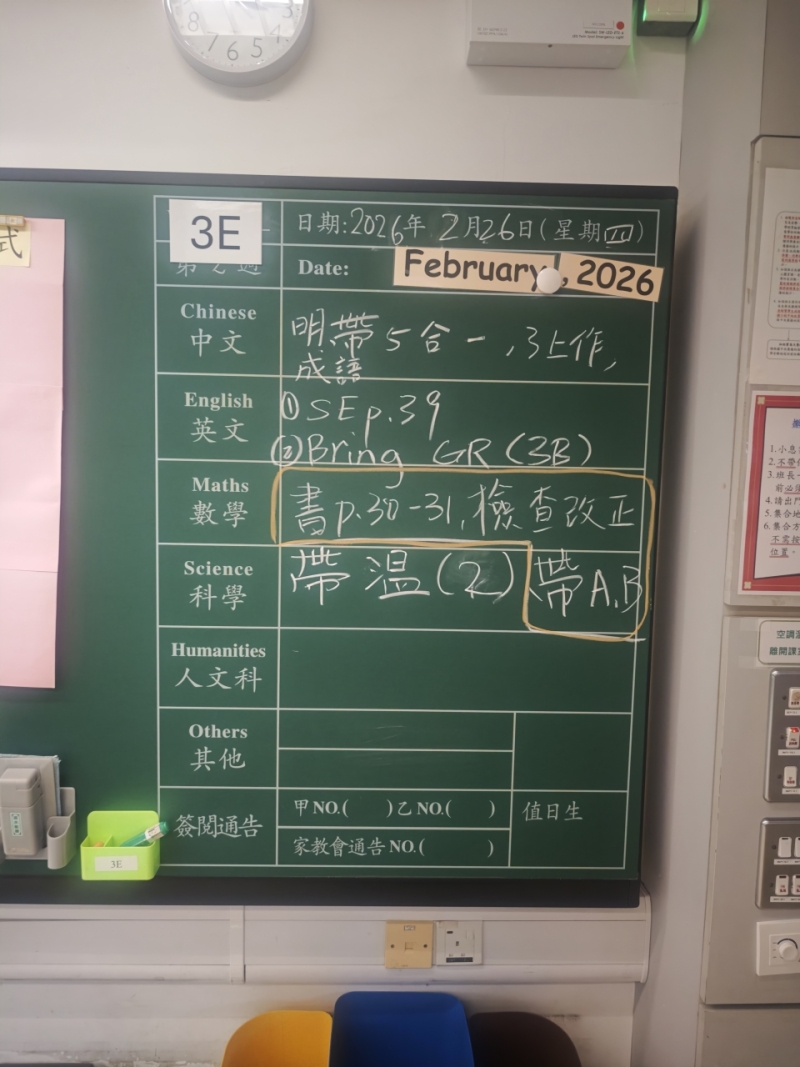 8 7 6 5 4 3
式
3E
日期:2026年 2月26日(星期四)
第2週
Date: February, 2026
Chinese
中文
明帶5合一,3上作,
成語
English
英文
①SE p.39
②Bring GR (3B)
Maths
數學
書p.30-31,檢查改正
Science
科學
帶溫(2) 帶A,B
Humanities
人文科
Others
其他
簽閱通告
甲NO.( )乙NO.( )
家教會通告NO.( )
值日生
3E